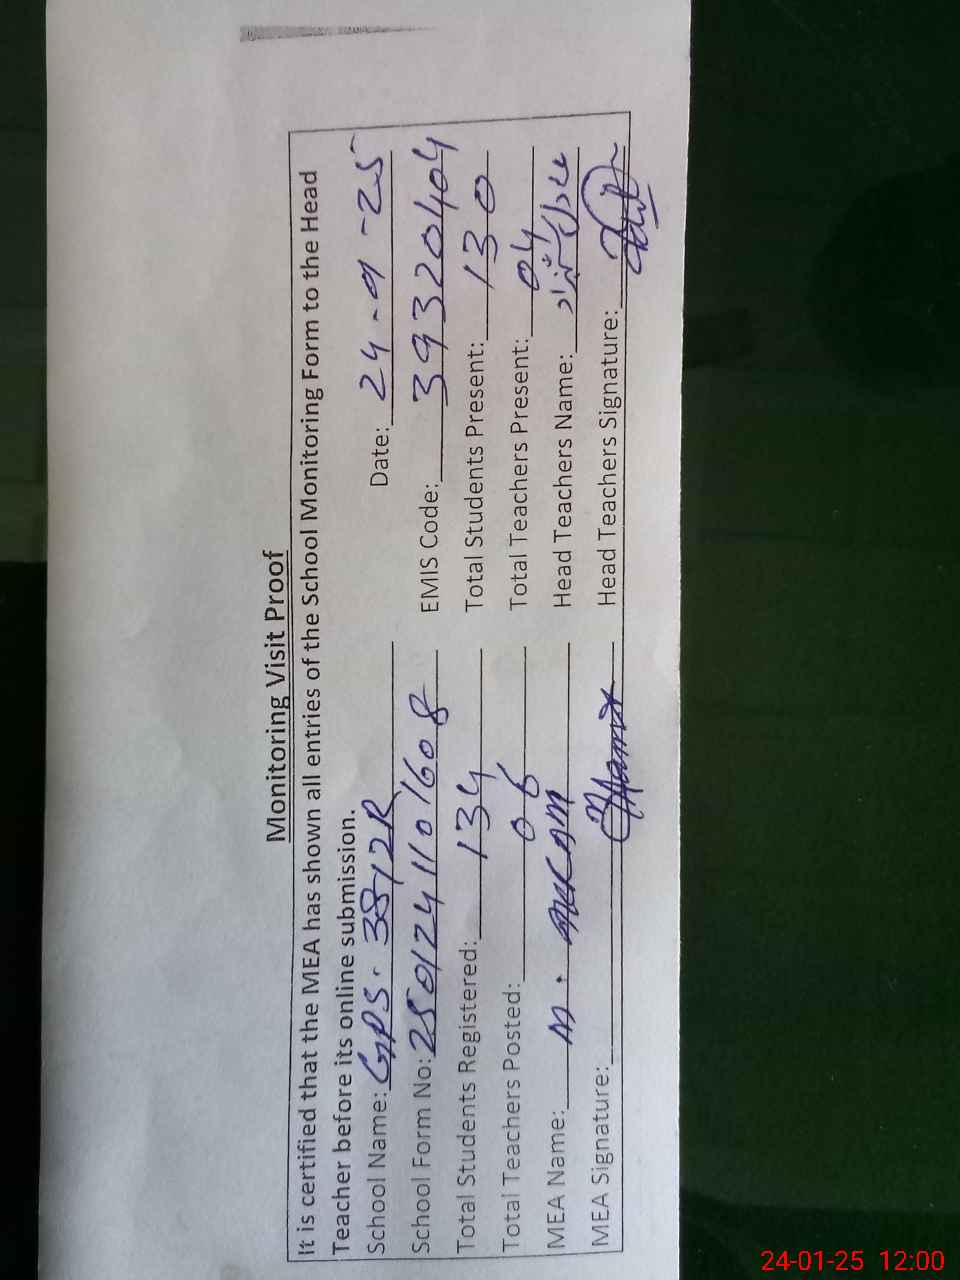 Monitoring Visit Proof
It is certified that the MEA has shown all entries of the School Monitoring Form to the Head
Teacher before its online submission.
School Name: GPS. 38/12R Date: 24-9-25
School Form No: 2501241101608 EMIS Code: 39320404
Total Students Registered: 134 Total Students Present: 130
Total Teachers Posted: 06 Total Teachers Present: 04
MEA Name: M. Head Teachers Name:
MEA Signature: Head Teachers Signature:
24-01-25 12:00